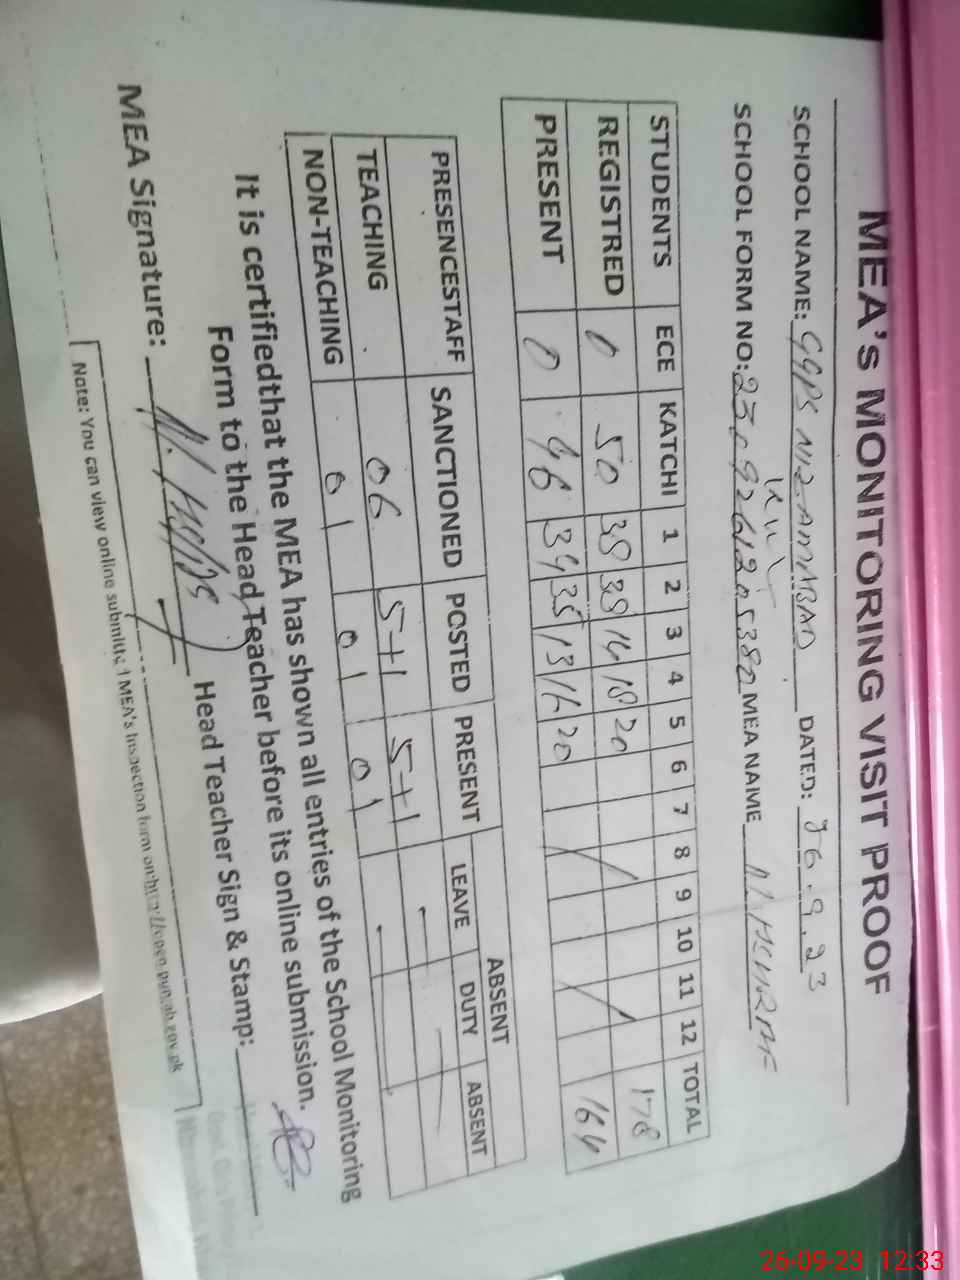 MEA's MONITORING VISIT PROOF
SCHOOL NAME: GGPS DATED: 26.9.23
SCHOOL FORM NO: MEA NAME
STUDENTS ECE KATCHI 1 2 3 4 5 6 7 8 9 10 11 12 TOTAL
REGISTRED 0 50 38 38 14 18 20 178
PRESENT 0 46 34 35 13 16 20 164
PRESENCESTAFF SANCTIONED POSTED PRESENT ABSENT
LEAVE DUTY ABSENT
TEACHING 06 5+1 5+1
NON-TEACHING 01 01 01
It is certifiedthat the MEA has shown all entries of the School Monitoring
Form to the Head Teacher before its online submission.
MEA Signature: Head Teacher Sign & Stamp:
Note: You can view online submitted MEA's Inspection form on:http://open.punjab.gov.pk
26-09-23 12:33